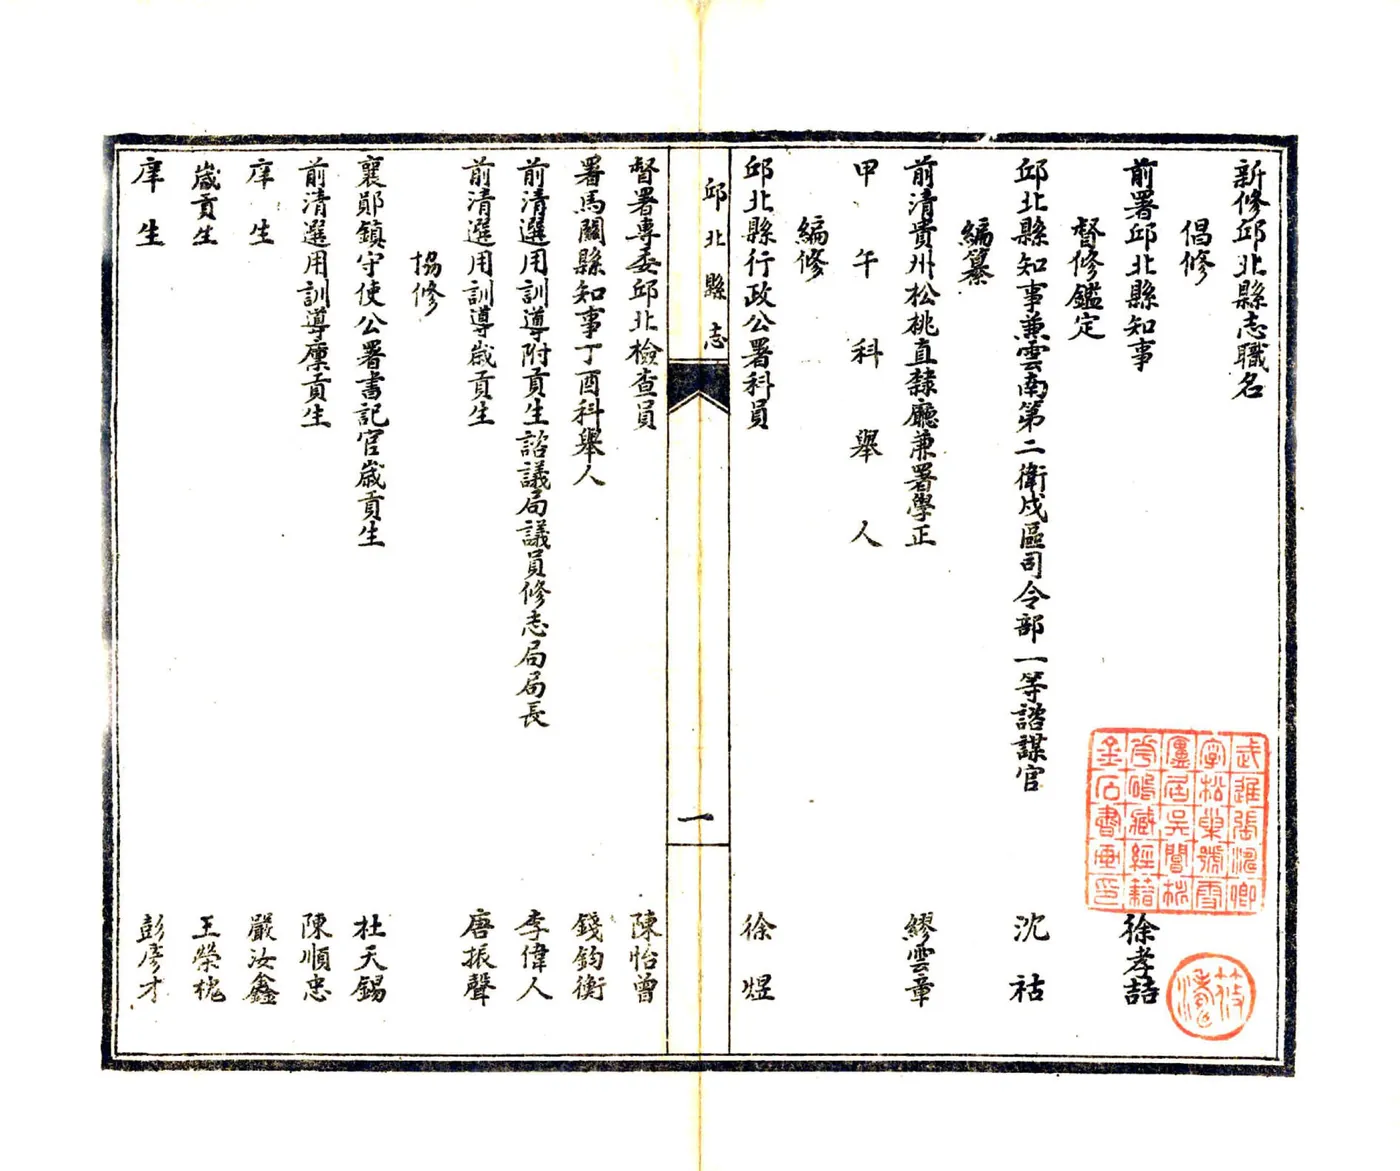 新修邱北縣志職名
倡修
前署邱北縣知事 徐孝喆
督修鑑定
邱北縣知事兼雲南第二衛戍區司令部一等諮謀官 沈祜
編纂
前清貴州松桃直隸廳兼署學正 繆雲章
甲午科舉人
編修
邱北縣行政公署科員 徐煜
邱北縣志
一
督署專委邱北檢查員 陳怡曾
署馬關縣知事丁酉科舉人 錢鈞衡
前清選用訓導附貢生諮議局議員修志局局長 李偉人
前清選用訓導歲貢生 唐振聲
協修
襄鄖鎮守使公署書記官歲貢生 杜天錫
前清選用訓導廩貢生 陳順忠
庠生 嚴汝鑫
歲貢生 王榮槐
庠生 彭彥才
武進張
字松巢號雪
盧居吳閶
藏經籍
金石書畫印